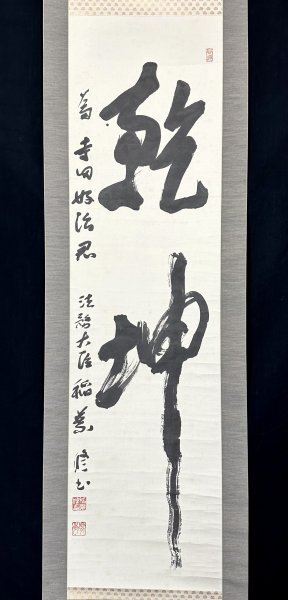 乾坤
為 寺田好治君
法務大臣 稲葉修書